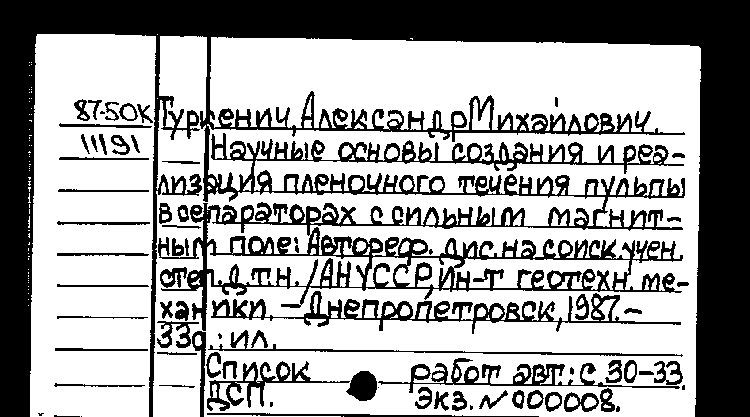 87-50К Туркенич, Александр Михайлович.
11191 Научные основы создания и реа-
лизация пленочного течения пульпы
в сепараторах с сильным магнит-
ным поле: Автореф. дис. на соиск. учен.
степ. д.т.н. / АН УССР, Ин-т геотехн. ме-
ханики. – Днепропетровск, 1987. –
33с.: ил.
Список работ авт.: с. 30-33.
ДСП. Экз. № 000008.